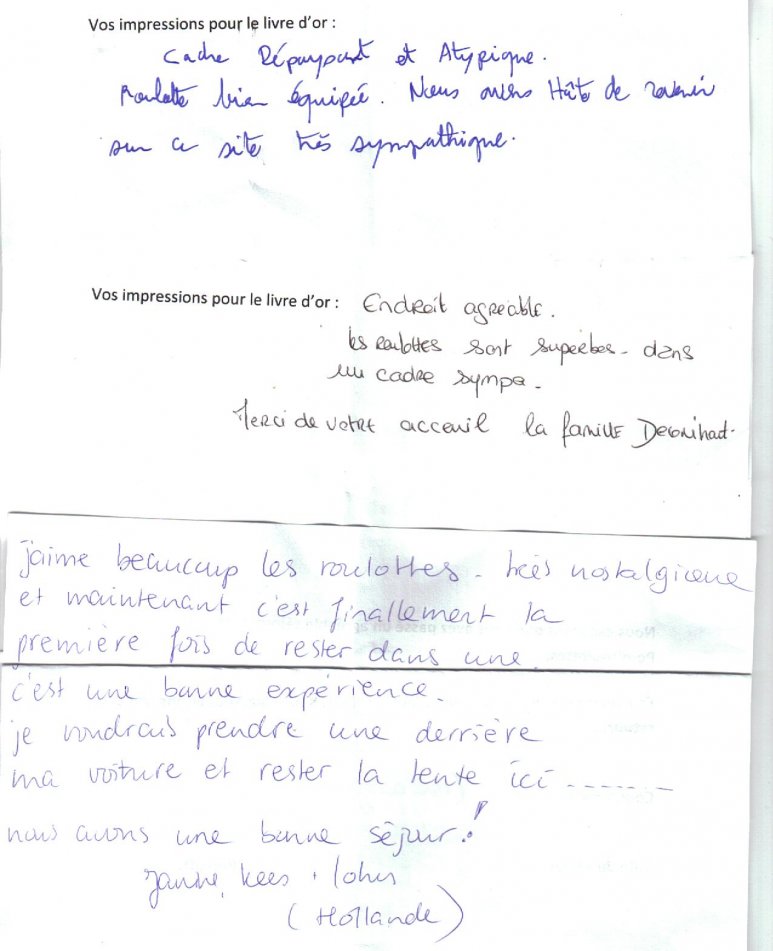 Vos impressions pour le livre d'or :
Cadre Répaypant et Atypique.
Roulotte bien équipée. Nous avons Hâte de revenir
sur ce site très sympathique.
Vos impressions pour le livre d'or : Endroit agréable.
les roulottes sont superbes - dans
un cadre sympa -
Merci de votre acceuil la famille
j'aime beaucoup les roulottes - très nostalgieue
et maintenant c'est finallement la
première fois de rester dans une
c'est une bonne expérience.
je voudrais prendre une derrière
ma voiture et rester la tente ici .......
nous avons une bonne séjour !
Kees +
(Hollande)